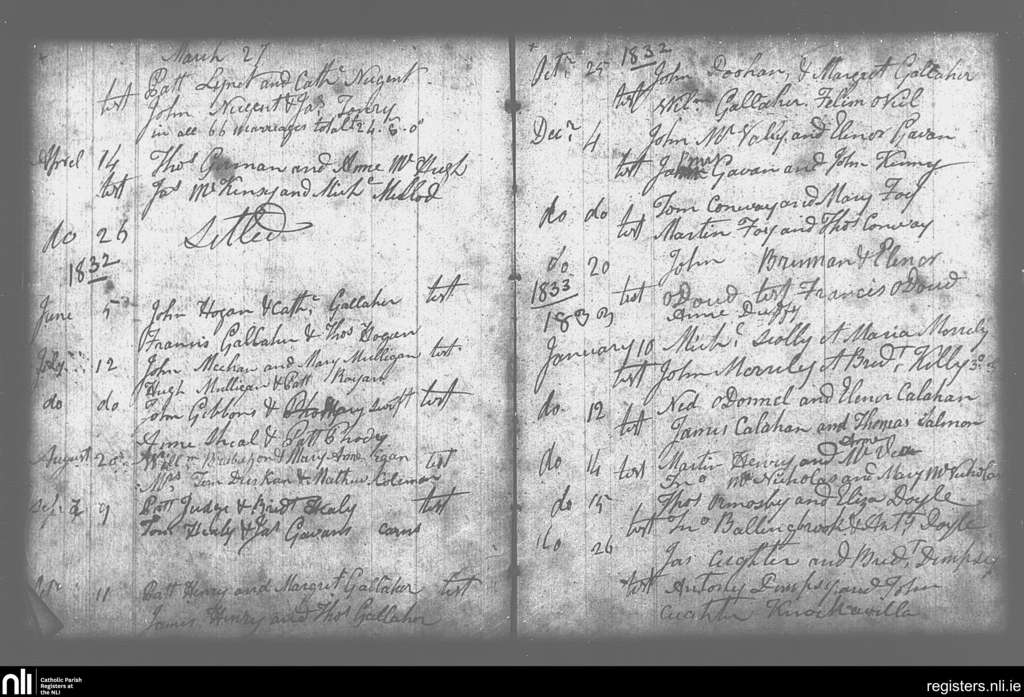 March 27
test Patt Lynet and Cath.r Nugent
John Nugent & Jas Henry
in all 66 marriages total £24..5..0
April 14 Thos Gorman and Anne Mc Hugh
test Jas Mc Kinsey and Mich.l
do 26 Setled
1832
June 5 John Hogan & Cath.r Gallaher test
Francis Gallaher & Thos Hogan
July 12 John Meehan and Mary Mulligan test
Hugh Mulligan & Patt
do do John Gibbons & Mary Swift test
Anne & Patt
August 20 & Mary Anne Egan test
Mrs Tom Driskan & Mathew Coleman
Sepr 9 Patt Judge & Bridt Healy test
Tom Healy & Jas Gavans
11 Patt Henry and Margret Gallaher test
James Henry and Thos Gallaher
1832
Octr 25 John Doohan, & Margret Gallaher
test Gallaher. Felim oNeil
Decr 4 John Mc Valy and Elinor Gavan
test James Gavan and John Kenny
do do Tom Conway and Mary Foy
test Martin Foy and Thos Conway
do 20 John Brennan & Elenor
1833 test oDoud test Francis oDoud
1833 Anne Duffy
January 10 Mich.l Scolly & Maria Morrely
test John Morrily & Bridt Killy
do 12 Ned oDonnel and Elenor Calahan
test James Calahan and Thomas Salmon
Anne
do 14 test Martin Henry and Mc
Jno Mc Nicholas and Mary Mc Nicholas
do 15 Thos Ormosby and Eliza Doyle
test Jno Ballingbrook & Anty Doyle
do 26 Jas Cughter and Bridt Dempsey
test Antony Dimpsy and John
Cughter Knockavilla
nli Catholic Parish
Registers at
the NLI
registers.nli.ie